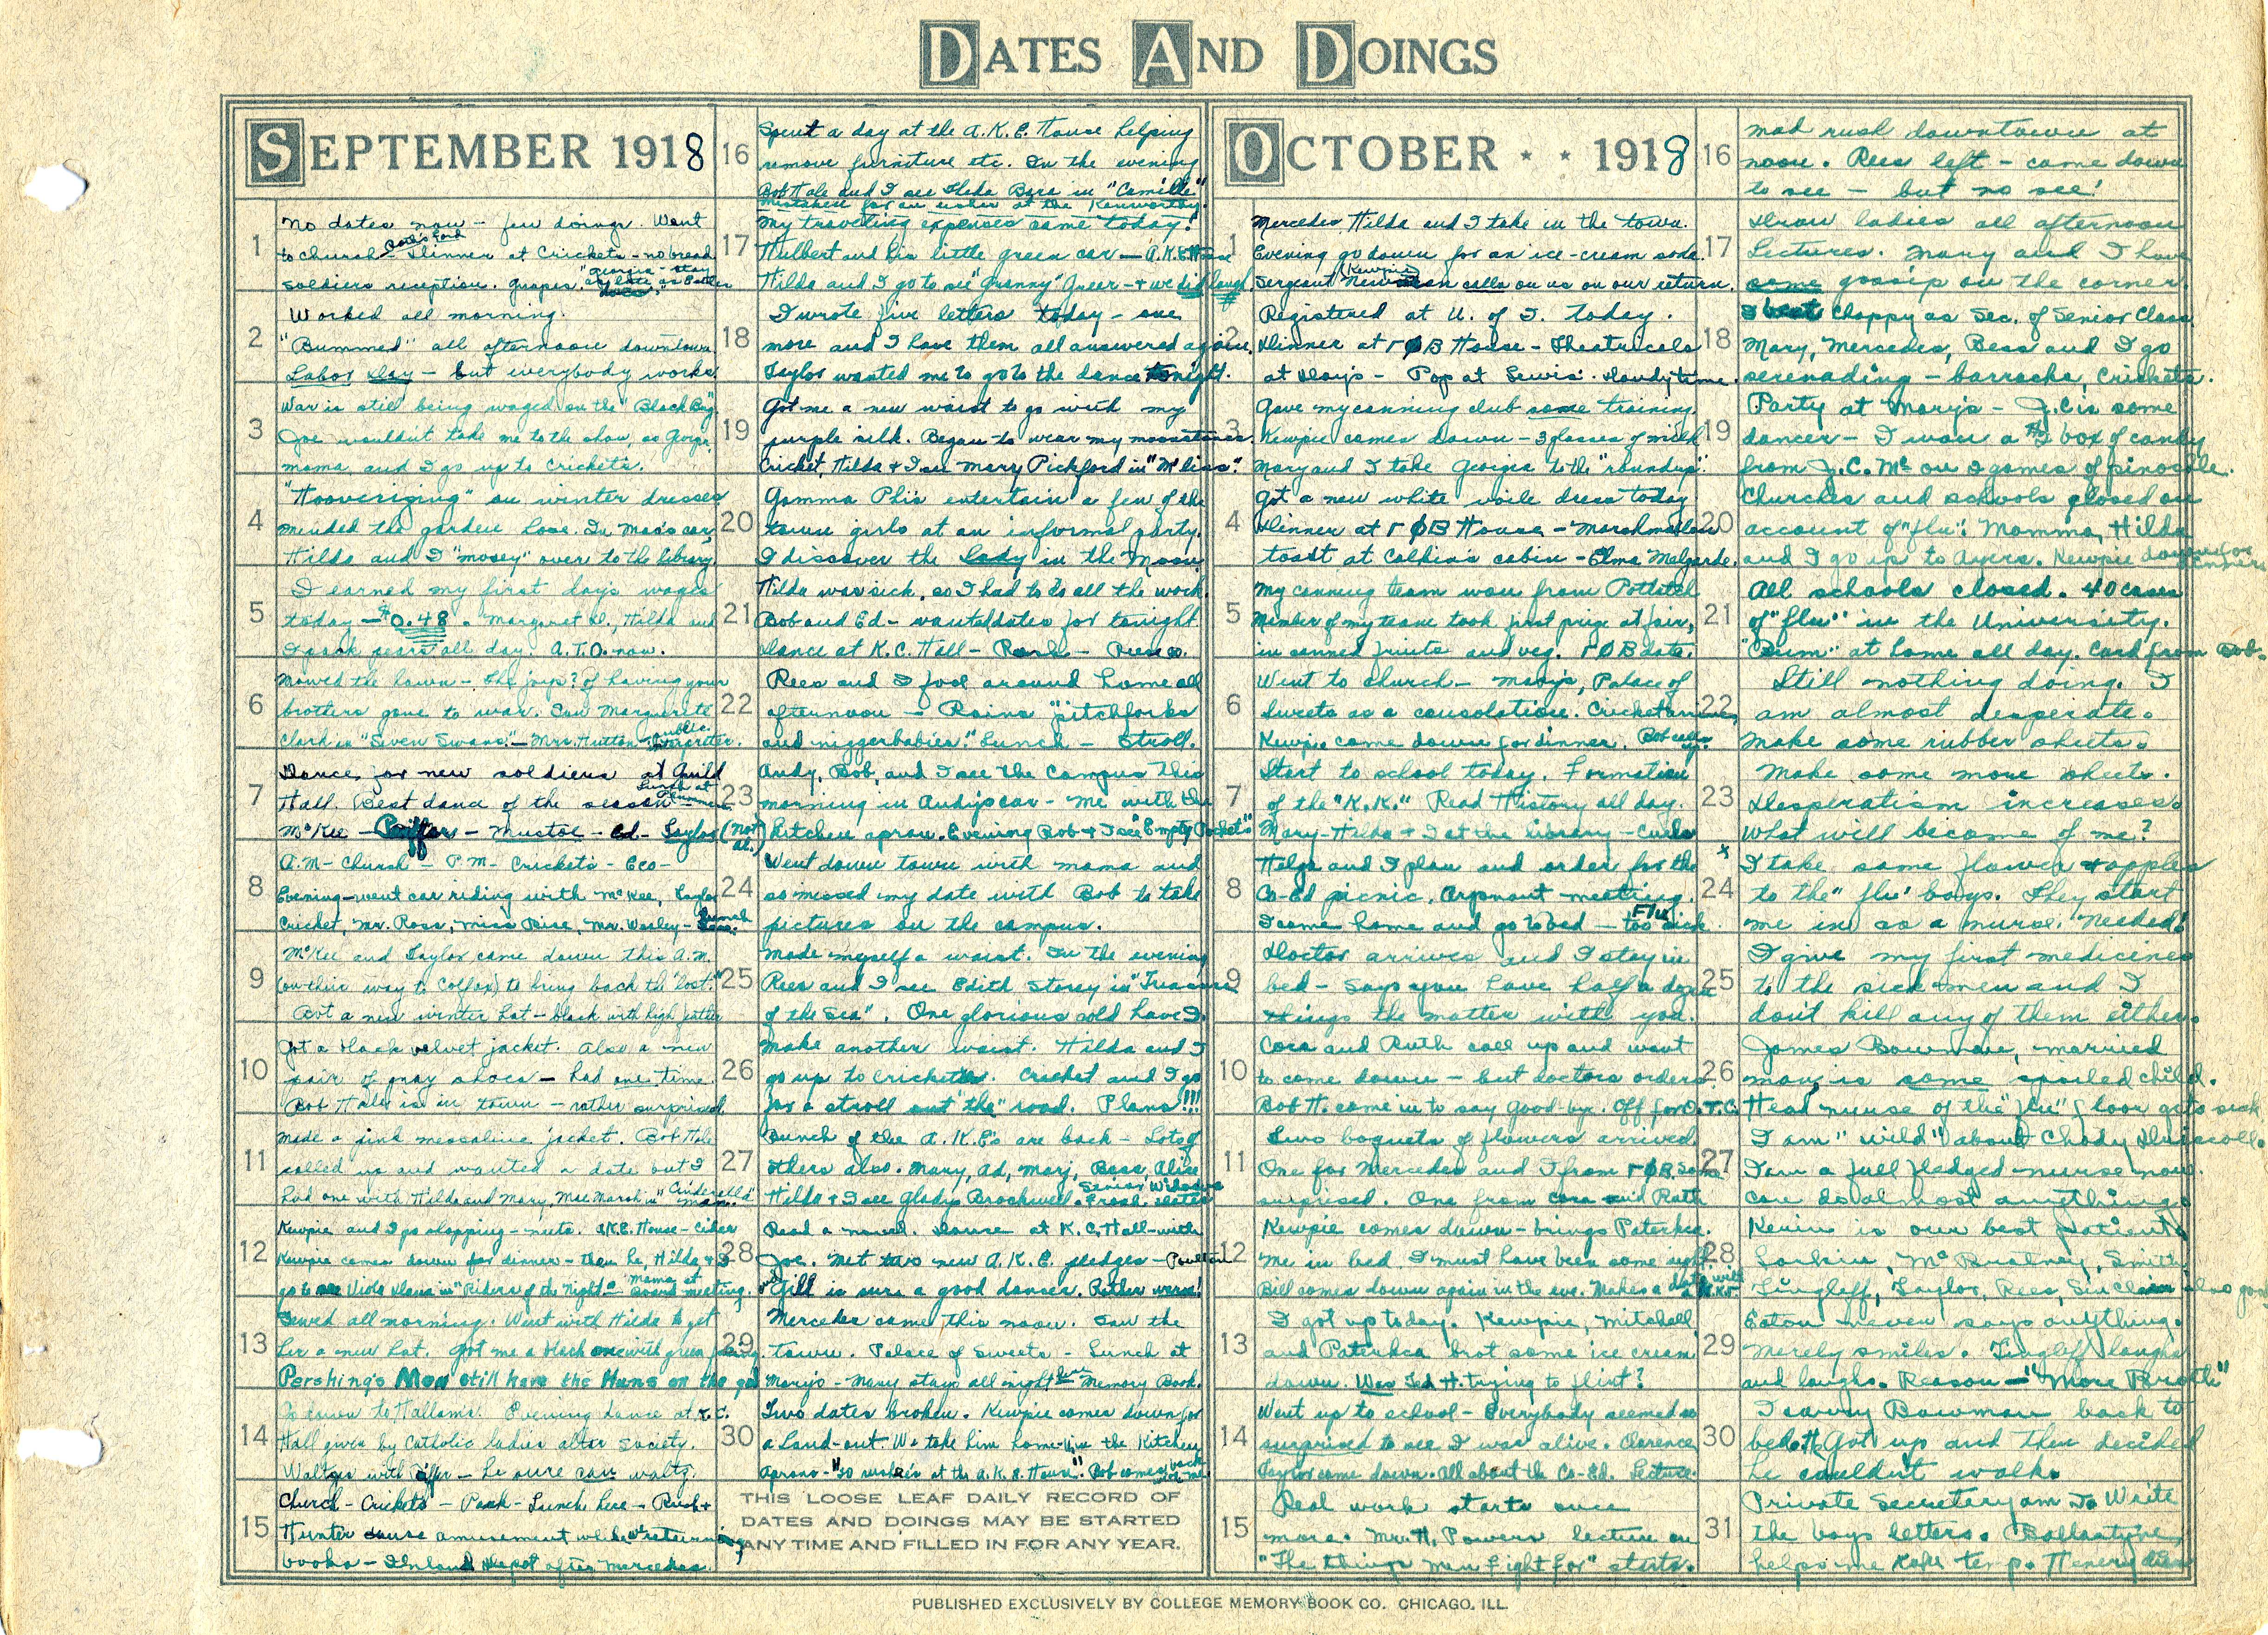 DATES AND DOINGS
SEPTEMBER 1918
1
No dates now - few doings. Went
to church - Dinner at Crickets - no bread
soldiers reception. Grapes.
2
Worked all morning.
"Bummed" all afternoon downtown
Labor Day - but everybody works
3
War is still being waged on the "Black Bug"
Joe wouldn't take me to the show, so
mama, and I go up to Crickets.
4
"Hooverizing" on winter dresses
mended the garden hose. In Mac's car,
Hilda and I "mosey" over to the library.
5
I earned my first day's wages
today - $0.48. Margaret D., Hilda and
I pack pears all day. A.T.O. now.
6
Mowed the lawn - the joys? of having your
brothers gone to war. Saw Marguerite
Clark in "Seven Swans" - Mrs. Hutton - public
7
Dance for new soldiers at Guild
Hall. Best dance of the season - Lunch at
McKee - Piffer - Mustoe - Ed - Taylor (not at.)
8
A.M - Church - P.M - Crickets - Eco -
Evening - went car riding with McKee, Taylor
Cricket, Mr. Ross, Miss Bise, Mr. Wesley - Lunch
9
McKee and Taylor came down this A.M.
(on their way to Colfax) to bring back the "lost."
Bot a new winter hat - black with high feather
10
Got a black velvet jacket. Also a new
pair of gray shoes - had one time.
Bob Hale is in town - rather surprised
11
Made a pink messaline jacket. Bob Hale
called up and wanted a date but I
had one with Hilda and Mary, Mae Marsh in "Cinderella Man."
12
Kewpie and I go shopping - nuts. A.K.E. House - Cider
Kewpie comes down for dinner - then he, Hilda & I
go to see Viola Dana in "Riders of the Night" - Mama at board meeting.
13
Sewed all morning. Went with Hilda to get
her a new hat. Got me a black one with green
Pershing's Men still have the Huns on the go!
14
Go down to Hallam's. Evening dance at K.C.
Hall given by Catholic ladies alter society.
Waltzes with Piffer - he sure can waltz.
15
Church - Crickets - Park - Lunch here - Rush &
Hunter cause amusement while returning
books - Inland Depot after Mercedes.
16
Spent a day at the A.K.E. House helping
remove furniture etc. In the evening
Bob Hale and I see Theda Bara in "Camille"
Mistaken for an usher at the Kenworthy.
17
My traveling expenses came today!
Hulbert and his little green car - A.K.E. House
Hilda and I go to see "Granny" Greer - & we did laugh.
18
I wrote five letters today - one
more and I have them all answered again.
Taylor wanted me to go to the dance tonight.
19
Got me a new waist to go with my
purple silk. Began to wear my moonstones.
Cricket, Hilda & I see Mary Pickford in "M'liss."
20
Gamma Phis entertain a few of the
town girls at an informal party.
I discover the lady in the Moon
21
Hilda was sick, so I had to do all the work.
Bob and Ed - wanted dates for tonight
Dance at K.C. Hall - Rush - Rees.
22
Rees and I fool around home all
afternoon - Rains "pitchforks
and niggerbabies." Lunch - Stroll.
23
Andy, Bob, and I see the Campus this
morning in Andy's car - me with the
kitchen apron. Evening Bob & I see "Empty Pockets"
24
Went down town with mama and
so missed my date with Bob to take
pictures on the campus.
25
Made myself a waist. In the evening
Rees and I see Edith Storey in "Treasure
of the Sea". One glorious cold have I.
26
Make another waist. Hilda and I
go up to Crickets. Cricket and I go
for a stroll out "the" road. Plans!!!
27
Bunch of the A.K.E's are back - Lots of
others also. Mary, Ad, Marj, Bess, Alice
Hilda & I see Gladys Brockwell. Senior Widows Fresh dates
28
Read a novel. Dance at K.C. Hall - with
Joe. Met two new A.K.E. pledges - Poulton
and Gill is sure a good dancer. Rather warm!
29
Mercedes came this noon. Saw the
town. Palace of Sweets - Lunch at
Mary's - Mary stays all night here Memory Book.
30
Two dates broken. Kewpie comes down for
a hand-out. We take him home - him the Kitchen
Aprons - "30 rushes at the A.K.E. House." Bob comes back with me.
THIS LOOSE LEAF DAILY RECORD OF
DATES AND DOINGS MAY BE STARTED
ANY TIME AND FILLED IN FOR ANY YEAR.
OCTOBER * * 1918
1
Mercedes Hilda and I take in the town.
Evening go down for an ice-cream soda.
Sergeant (Kewpie) Newman calls on us on our return.
2
Registered at U. of I. today.
Dinner at ΓΦB House - Theatricals
at Hays - Pop at Lewis'. Dandy time.
3
Gave my canning club some training.
Kewpie comes down - 3 glasses of milk
Mary and I take Georgia to the "roundup".
4
Got a new white voile dress today
Dinner at ΓΦB House - Marshmallow
toast at Calkin's cabin - Elma Melgarde.
5
My canning team won from Potlatch
Member of my team took first prize at fair,
in canned fruits and veg. ΓΦB date.
6
Went to church - Mary's, Palace of
Sweets as a consolation. Cricket arrives,
Kewpie came down for dinner. Bob calls up.
7
Start to school today. Formation
of the "K.K." Read History all day.
Mary - Hilda & I at the library - Curls
8
Helga and I plan and order for the
Co-Ed picnic. Argonaut meeting.
I come home and go to bed - too sick Flu
9
Doctor arrives and I stay in
bed - Says you have half a dozen
things the matter with you.
10
Cora and Ruth call up and want
to come down - but doctors orders
Bob H. came in to say good-bye. Off for O.T.C.
11
Two boquets of flowers arrived
One for Mercedes and I from ΓΦB. Some
surprised. One from Cora and Ruth
12
Kewpie comes down - brings Paterkca.
Me in bed. I must have been some sight.
Bill comes down again in the eve. Makes a date with
13
I got up today. Kewpie, Mitchell
and Paterkca brot some ice cream
down. Was Ted H. trying to flirt?
14
Went up to school - Everybody seemed so
surprised to see I was alive. Clarence
Taylor came down. All about the Co-Ed. Lecture.
15
Real work starts once
more. Mr. H. Powers lecture on
"The things men fight for" starts.
16
Mad rush downtown at
noon. Rees left - came down
to see - but no see!
17
Draw ladies all afternoon
Lectures. Mary and I have
some gossip on the corner.
18
I beat Chappy as Sec. of Senior Class
Mary, Mercedes, Bess and I go
serenading - barracks, Crickets.
19
Party at Mary's - J.C. is some
dancer - I won a $2 box of candy
from J.C. Mc on 2 games of pinocle.
20
Churches and schools closed on
account of "flu". Mamma, Hilda
and I go up to Ayers. Kewpie down for dinner
21
All schools closed. 40 cases
of "flu" in the University.
"Bum" at home all day. Card from Bob.
22
Still nothing doing. I
am almost desperate.
Make some rubber sheets.
23
Make some more sheets.
Desperatism increases.
What will become of me?
24
I take some flowers & apples
to the "flu" boys. They start
me in as a nurse. Needed!
25
I give my first medicines
to the sick men and I
don't kill any of them either.
26
James Bowman, married
man, is some spoiled child.
Head nurse of the "flu" floor gets sick
27
I am "wild" about Chady Driscoll.
I am a full fledged nurse now.
can do almost anything.
28
Kevin is our best patient.
Larkin, McBratney, Smith
Tingleff, Taylor, Rees, Sinclair also good
29
Eaton never says anything.
Merely smiles. Tingleff laughs
and laughs. Reason - "More Broth"
30
I carry Bowman back to
bed. Got up and then decided
he couldn't walk.
31
Private Secretary am I. Write
the boys letters. Ballantyne
helps me take temp. Henery dies
PUBLISHED EXCLUSIVELY BY COLLEGE MEMORY BOOK CO. CHICAGO, ILL.